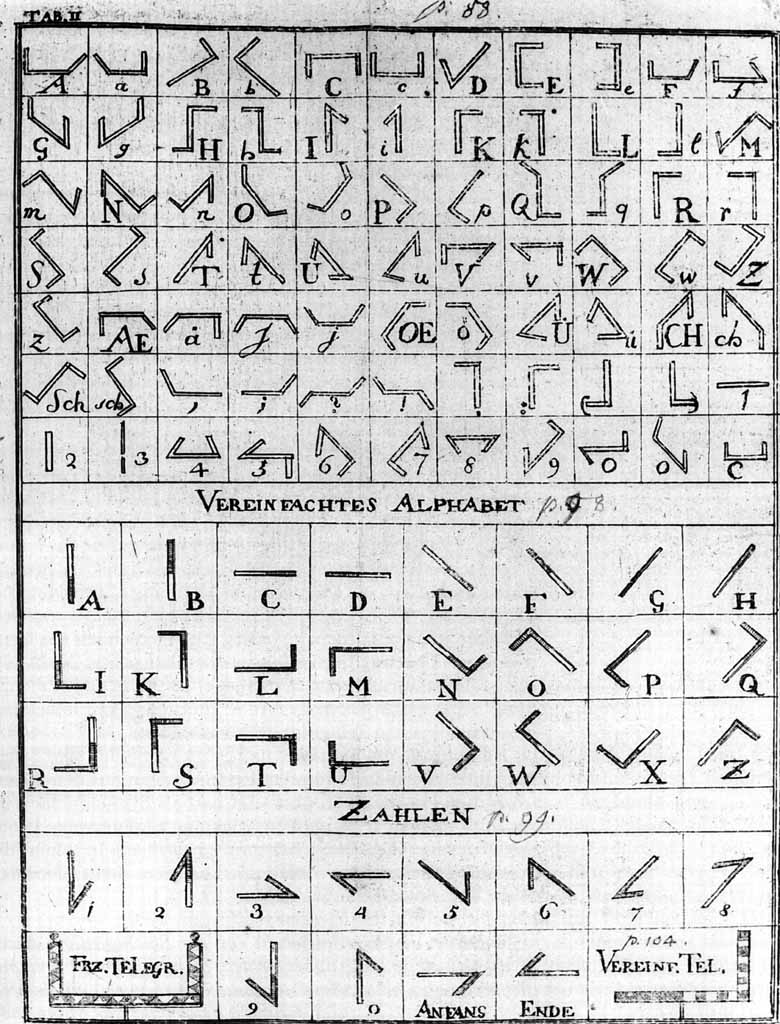 TAB. II
p. 88.
A a B b C c D E e F f
G g H h I i K k L l M
m N n O o P p Q q R r
S s T t U u V v W w Z
z AE ä J j OE ö Ü ü CH ch
Sch sch , ; ? ! . : ( ) 1
2 3 4 5 6 7 8 9 0 0 C
VEREINFACHTES ALPHABET p. 98.
A B C D E F G H
I K L M N O P Q
R S T U V W X Z
ZAHLEN p. 99.
1 2 3 4 5 6 7 8
FRZ. TELEGR. 9 0 ANFANS ENDE p. 104 VEREINF. TEL.